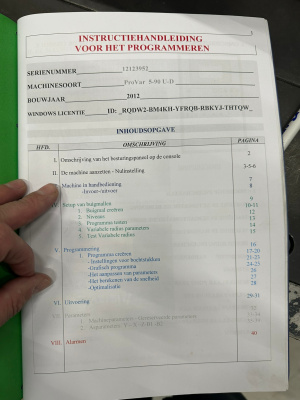 INSTRUCTIEHANDLEIDING
VOOR HET PROGRAMMEREN
SERIENUMMER 12123952
MACHINESOORT ProVar S-90 U-D
BOUWJAAR 2012
WINDOWS LICENTIE ID: _RQDW2-BM4KH-YFRQB-RBKYJ-THTQW_
INHOUDSOPGAVE
HFD. OMSCHRIJVING PAGINA
I. Omschrijving van het besturingspaneel op de console 2
II. De machine aanzetten - Nulinstelling 3-5-6
7
Machine in handbediening 8
-Invoer-uitvoer
9
IV. Setup van buigmallen 10
1. Buigmal creëren 12
2. Niveaus 13
3. Programma testen 14
4. Variabele radius parameters 15
5. Test Variabele radius
16
V. Programmering 17-20
1. Programma creëren 21-23
-Instellingen voor bochtstukken 24-25
-Grafisch programma 26
-Het aanpassen van parameters 27
-Het berekenen van de snelheid 28
-Optimalisatie
VI. Uitvoering 29-31
VII. Parameters
1. Machineparameters
VIII. Alarmen 40